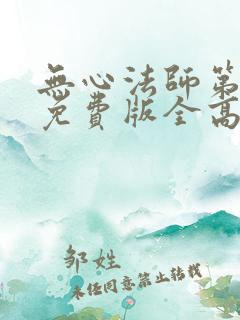 無心法師第
免費版全高
邹姓
未经同意禁止转载